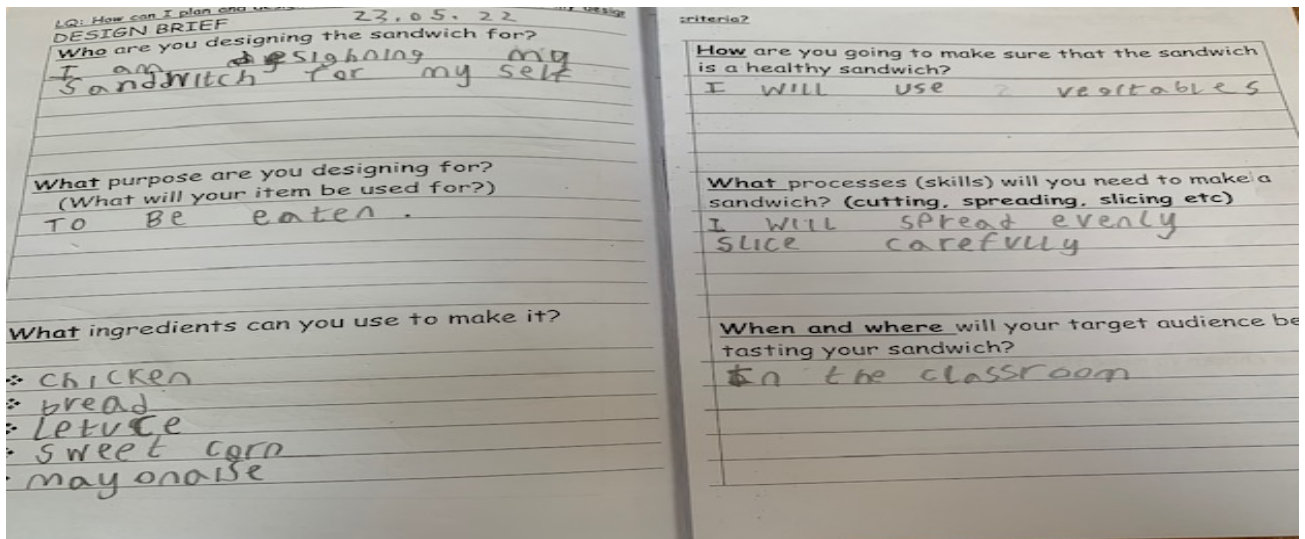 LQ: How can I plan and
design
23.05.22
DESIGN BRIEF
Who are you designing the sandwich for?
I am desighning my
Sandwitch for my self
What purpose are you designing for?
(What will your item be used for?)
TO BE eaten.
What ingredients can you use to make it?
chicken
bread
Letuce
sweet corn
mayonaise
criteria?
How are you going to make sure that the sandwich
is a healthy sandwich?
I WILL use vegitables
What processes (skills) will you need to make a
sandwich? (cutting, spreading, slicing etc)
I WILL spread evenly
SLICE carefully
When and where will your target audience be
tasting your sandwich?
In the classroom